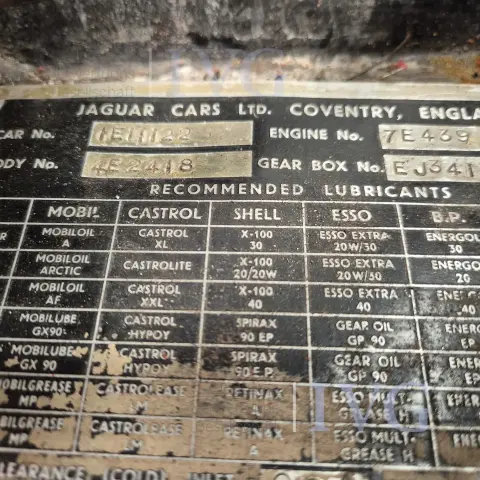 JAGUAR CARS LTD. COVENTRY, ENGLA
CAR No. 1E11122 ENGINE No. 7E439
ODY No. 4E2418 GEAR BOX No. EJ341
RECOMMENDED LUBRICANTS
MOBIL CASTROL SHELL ESSO B.P.
MOBILOIL A CASTROL XL X-100 30 ESSO EXTRA 20W/30 ENERGOL 30
MOBILOIL ARCTIC CASTROLITE X-100 20/20W ESSO EXTRA 20W/30 ENERGO 20
MOBILOIL AF CASTROL XXL X-100 40 ESSO EXTRA 40 40
MOBILUBE GX90 CASTROL HYPOY SPIRAX 90 EP GEAR OIL GP 90 ENERGO EP
MOBILUBE GX 90 CASTROL HYPOY SPIRAX 90 E.P. GEAR OIL GP 90 EP
MOBILGREASE MP CASTROLEASE LM RETINAX A ESSO MULT- GREASE H ENER
MOBILGREASE MP CASTROLEASE LM RETINAX A ESSO MULT- GREASE H ENE
CLEARANCE (COLD) INLET
IVG